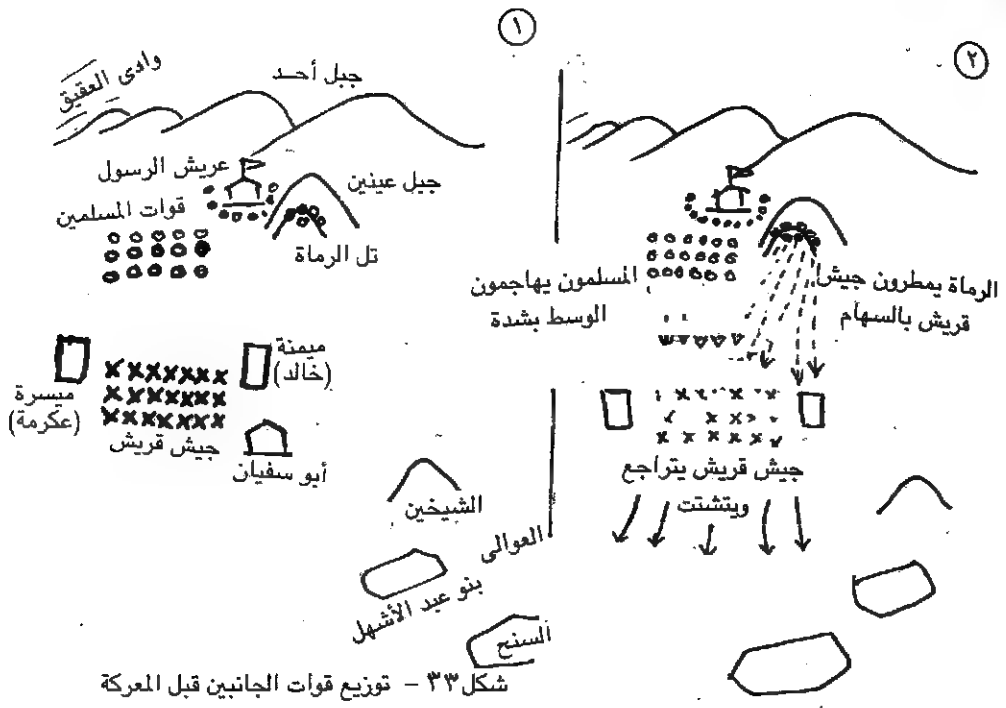 ١
وادى العقيق
جبل أحد
عريش الرسول
جبل عينين
قوات المسلمين
تل الرماة
ميمنة
(خالد)
ميسرة
(عكرمة)
جيش قريش
أبو سفيان
الشيخين
العوالى
بنو عبد الأشهل
السنح
شكل ٣٣ – توزيع قوات الجانبين قبل المعركة
٢
الرماة يمطرون جيش
قريش بالسهام
المسلمون يهاجمون
الوسط بشدة
جيش قريش يتراجع
ويتشتت